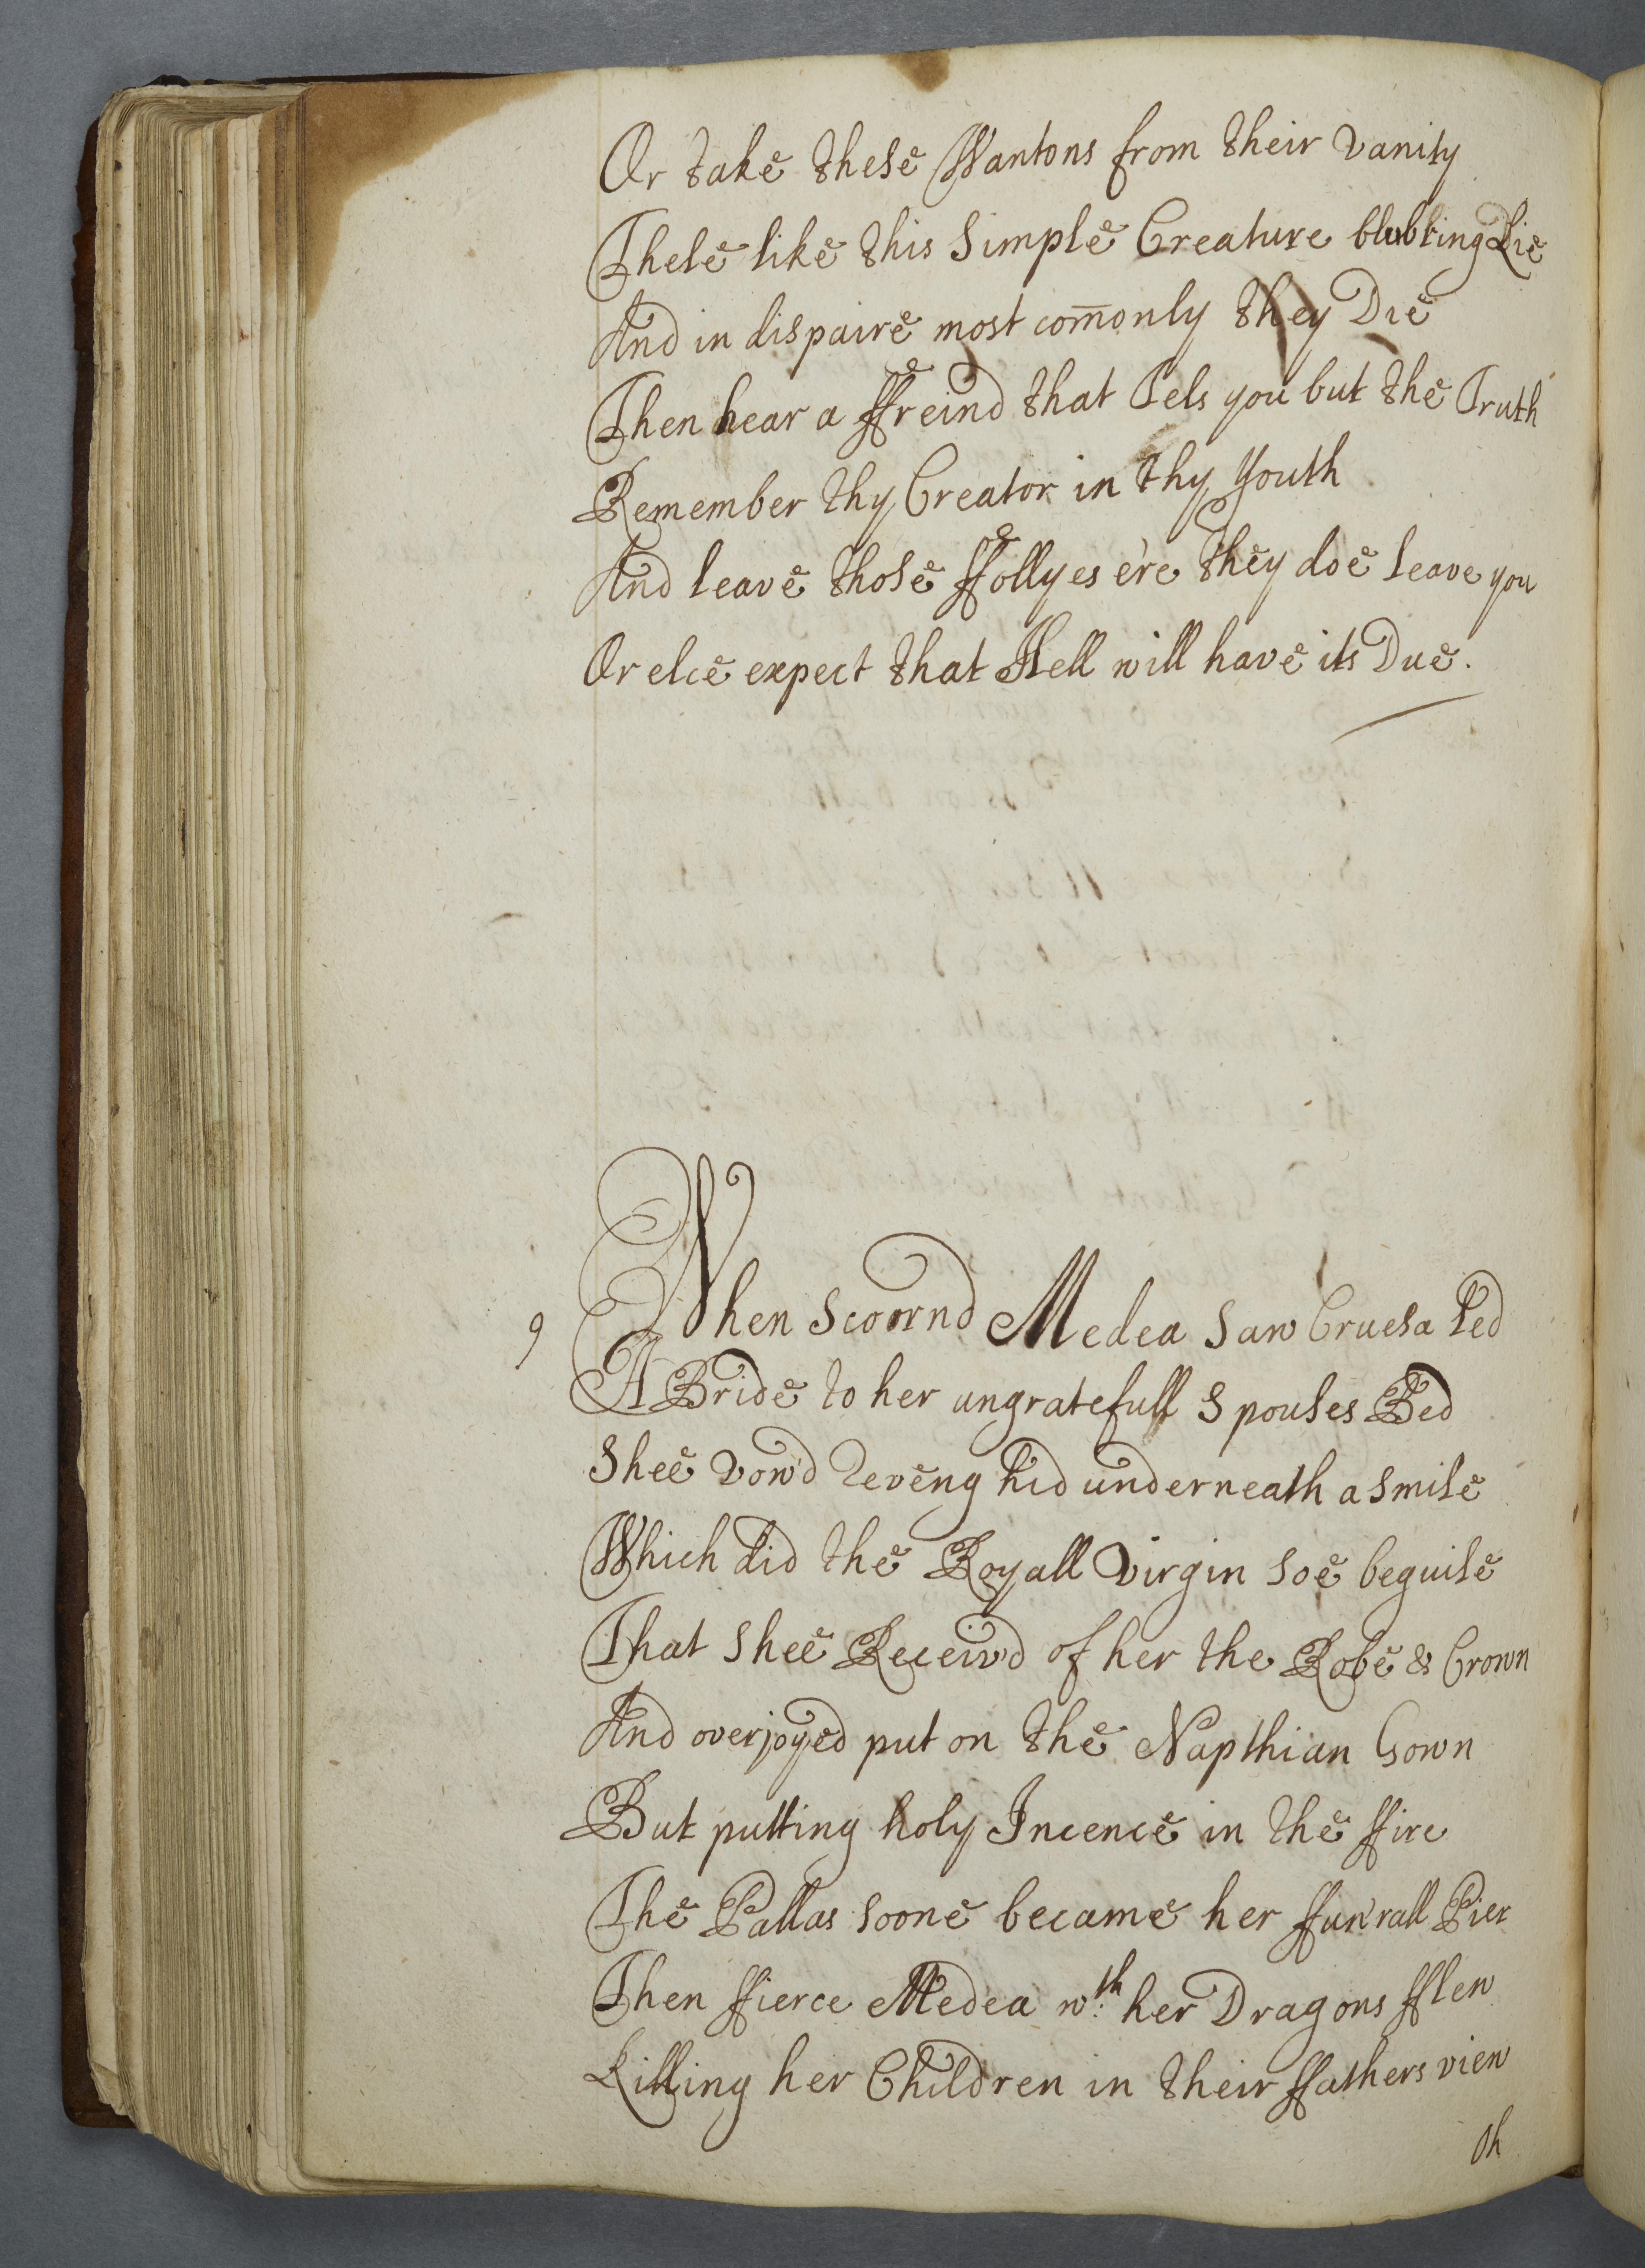 Or take these Wantons from their vanity
These like this Simple Creature blubbring Lie
And in dispaire most com̄only they Die
Then hear a ffreind that Tels you but the Truth
Remember thy Creator in thy Youth
And leave those ffollyes e're they doe leave you
Or elce expect that Hell will have its Due.
9 When Scoornd Medea Saw Cruesa Led
A Bride to her ungratefull Spouses Bed
Shee vow'd Reveng hid underneath a Smile
Which did the Royall Virgin Soe beguile
That Shee Receiv'd of her the Robe & Crown
And overjoyed put on the Napthian Gown
But putting holy Incence in the ffire
The Pallas Soone became her ffun'rall Pier
Then ffierce Medea wth her Dragons fflew
Killing her Children in their ffathers view
Oh